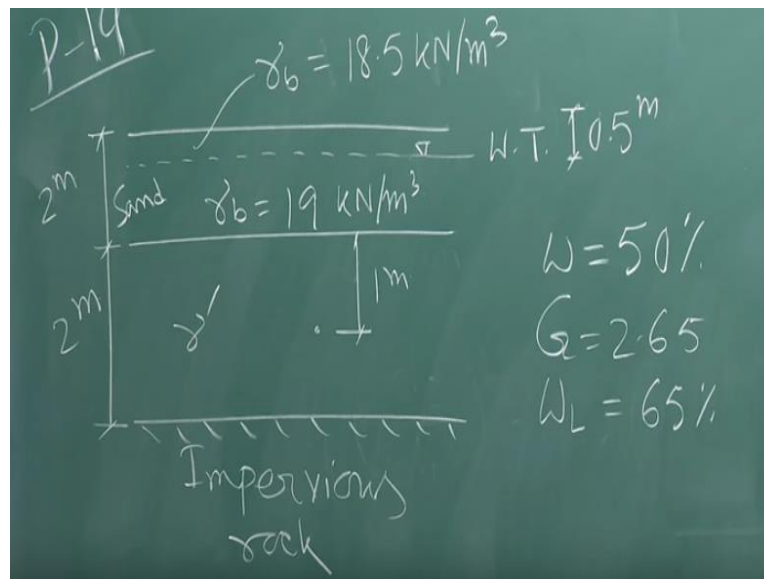 P-19
γb = 18.5 kN/m³
W.T. 0.5 m
2 m
Sand γb = 19 kN/m³
1 m
2 m
γ'
W = 50%
G = 2.65
WL = 65%
Impervious
rock